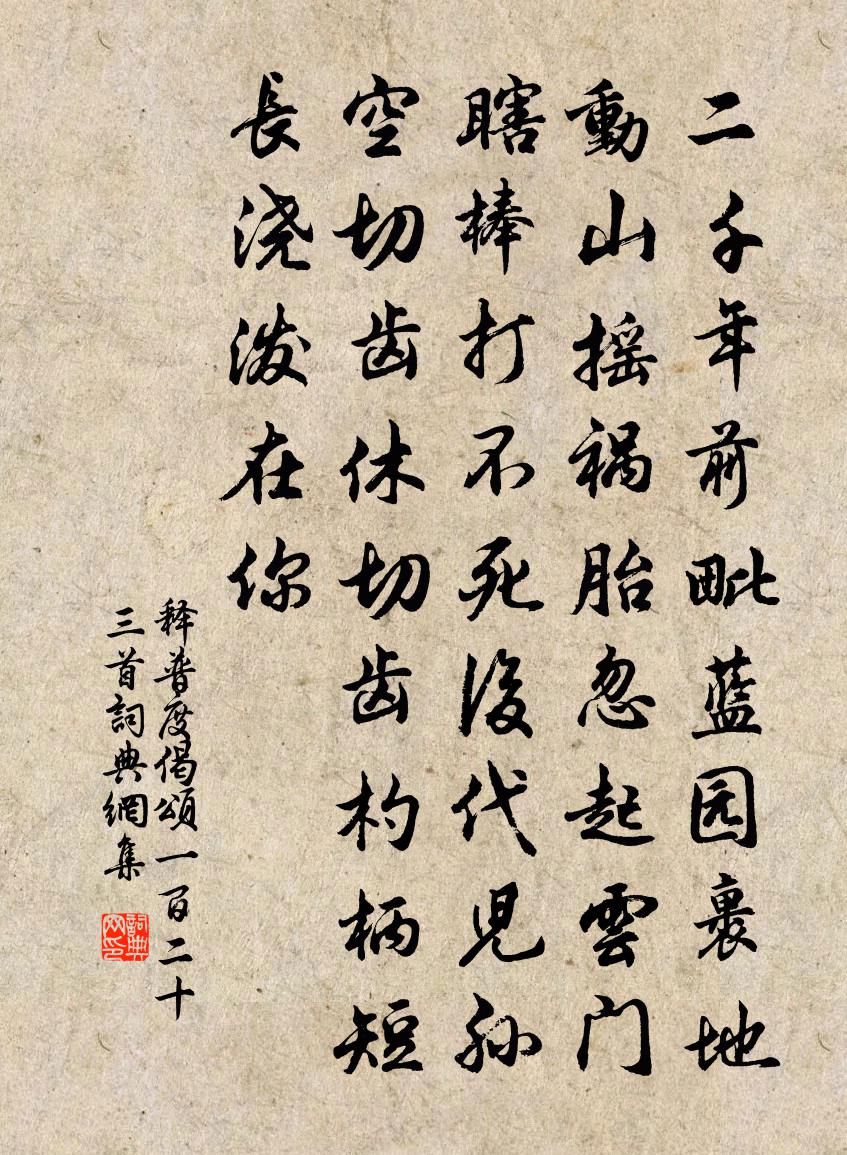 二千年前毗藍园裏地
動山摇祸胎忽起雲门
瞎棒打不死後代児孙
空切齿休切齿杓柄短
長浇泼在你
释普度偈頌一百二十
三首詞典網集
詞典网印